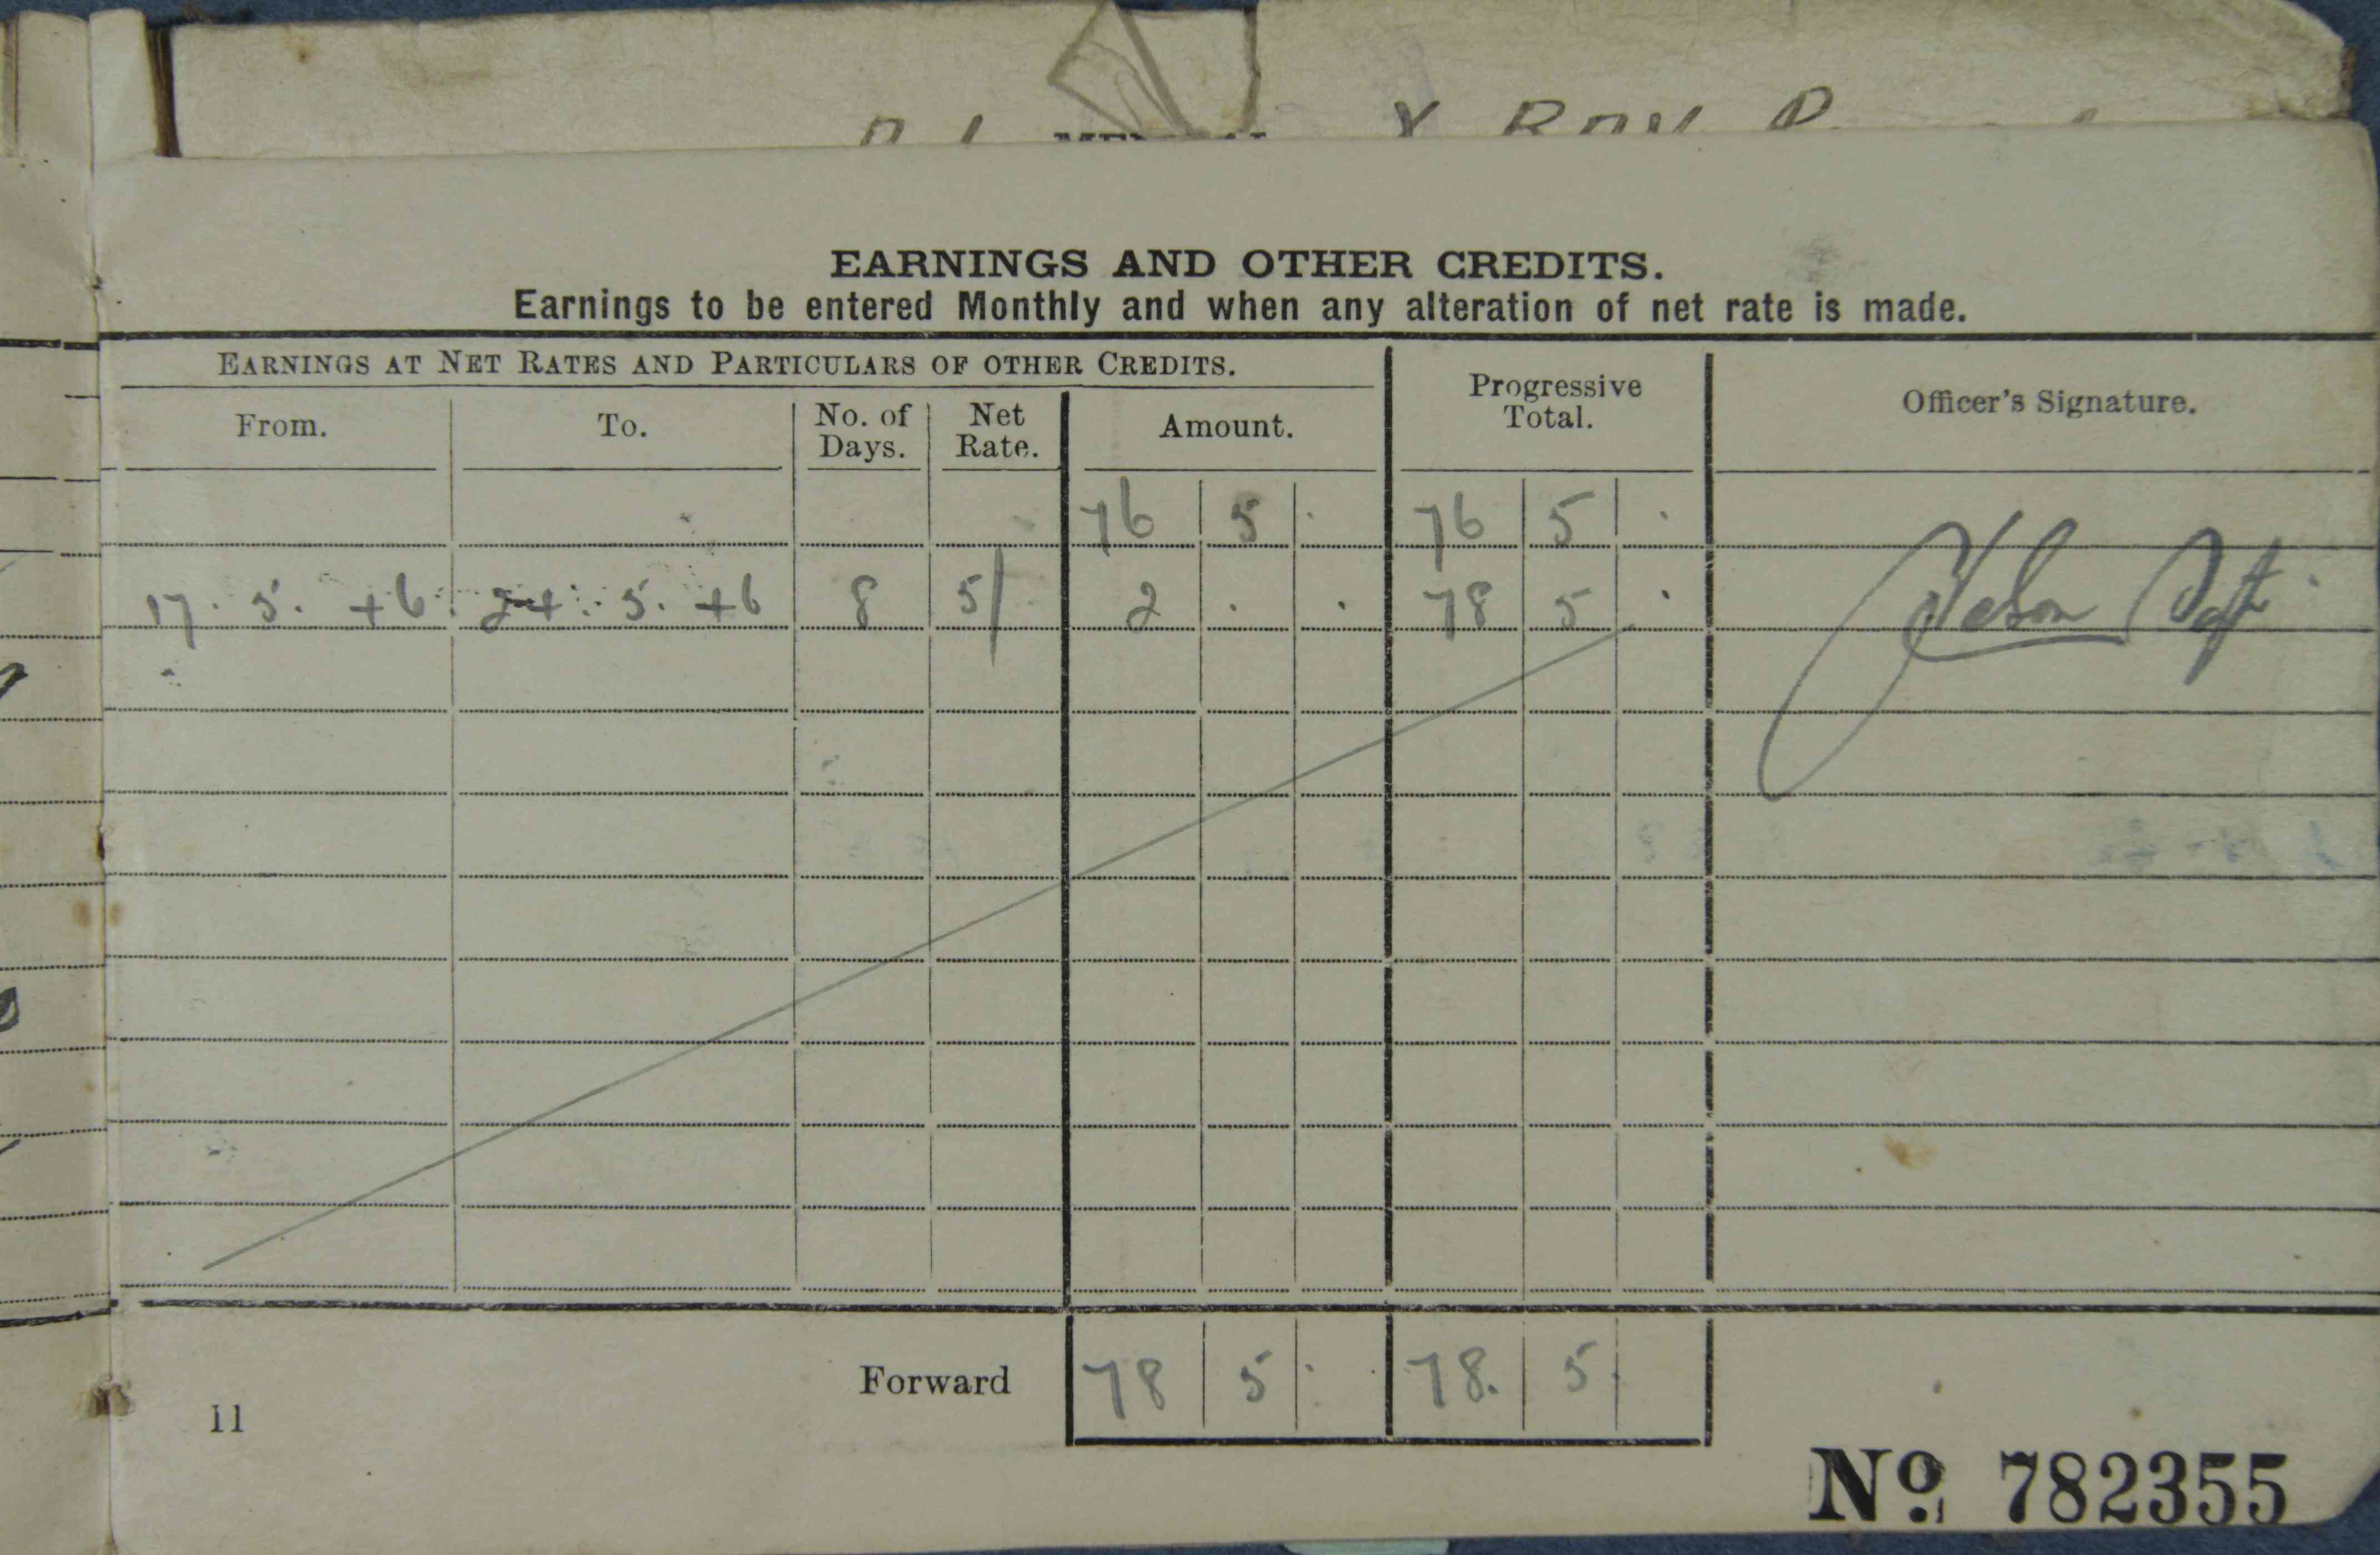 X RAY
EARNINGS AND OTHER CREDITS.
Earnings to be entered Monthly and when any alteration of net rate is made.
EARNINGS AT NET RATES AND PARTICULARS OF OTHER CREDITS.
From. To. No. of Days. Net Rate. Amount. Progressive Total. Officer's Signature.
76 5 . 76 5 .
17. 5. 46. 24. 5. 46 8 5/ 2 . . 78 5 .
Forward 78 5 . 78. 5.
11
No. 782355